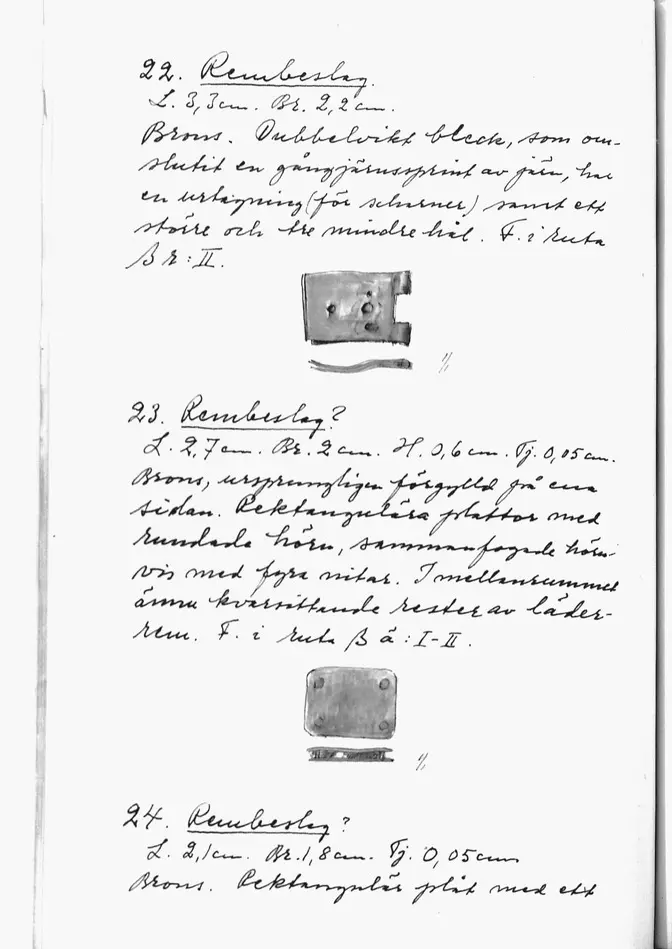 22. Rembeslag.
L. 3,3 cm. Br. 2,2 cm.
Brons. Dubbelvikt bleck, som om-
slutit en gångjärnssprint av järn, har
en urtagning (för scharner) samt ett
större och tre mindre hål. F. i ruta
B r : II.
1/1
23. Rembeslag?
L. 2,7 cm. Br. 2 cm. H. 0,6 cm. Tj. 0,05 cm.
Brons, ursprungligen förgylld på ena
sidan. Rektangulära plattor med
rundade hörn, sammanfogade hörn-
vis med fyra nitar. I mellanrummet
ännu kvarsittande rester av läder-
rem. F. i ruta B ä : I-II.
1/1
24. Rembeslag?
L. 2,1 cm. Br. 1,8 cm. Tj. 0,05 cm
Brons. Rektangulär plåt med ett